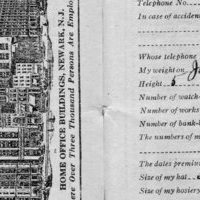 HOME OFFICE BUILDINGS, NEWARK, N. J.
ere Over Three Thousand Persons Are Employ
Telephone No.
In case of acciden
Whose telephone
My weight on
Height 5
Number of watch
Number of works
Number of bank-b
The numbers of m
The dates premiu
Size of my hat
Size of my hosiery